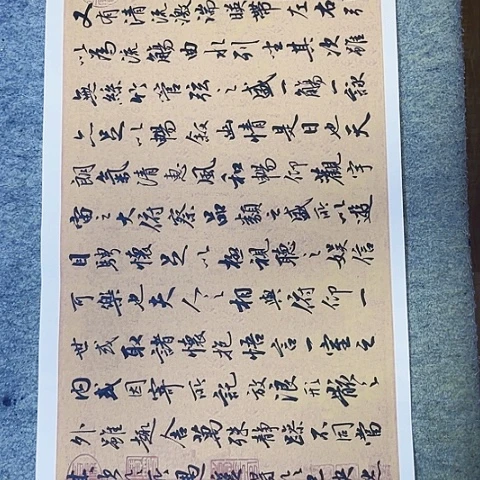 又有清流激湍暎帶左右引
以為流觴曲水列坐其次雖
無絲竹管弦之盛一觴一詠
亦足以暢叙幽情是日也天
朗氣清惠風和暢仰觀宇
宙之大俯察品類之盛所以遊
目騁懷足以極視聽之娛信
可樂也夫人之相與俯仰一
世或取諸懷抱悟言一室之
內或因寄所託放浪形骸之
外雖趣舍萬殊靜躁不同當